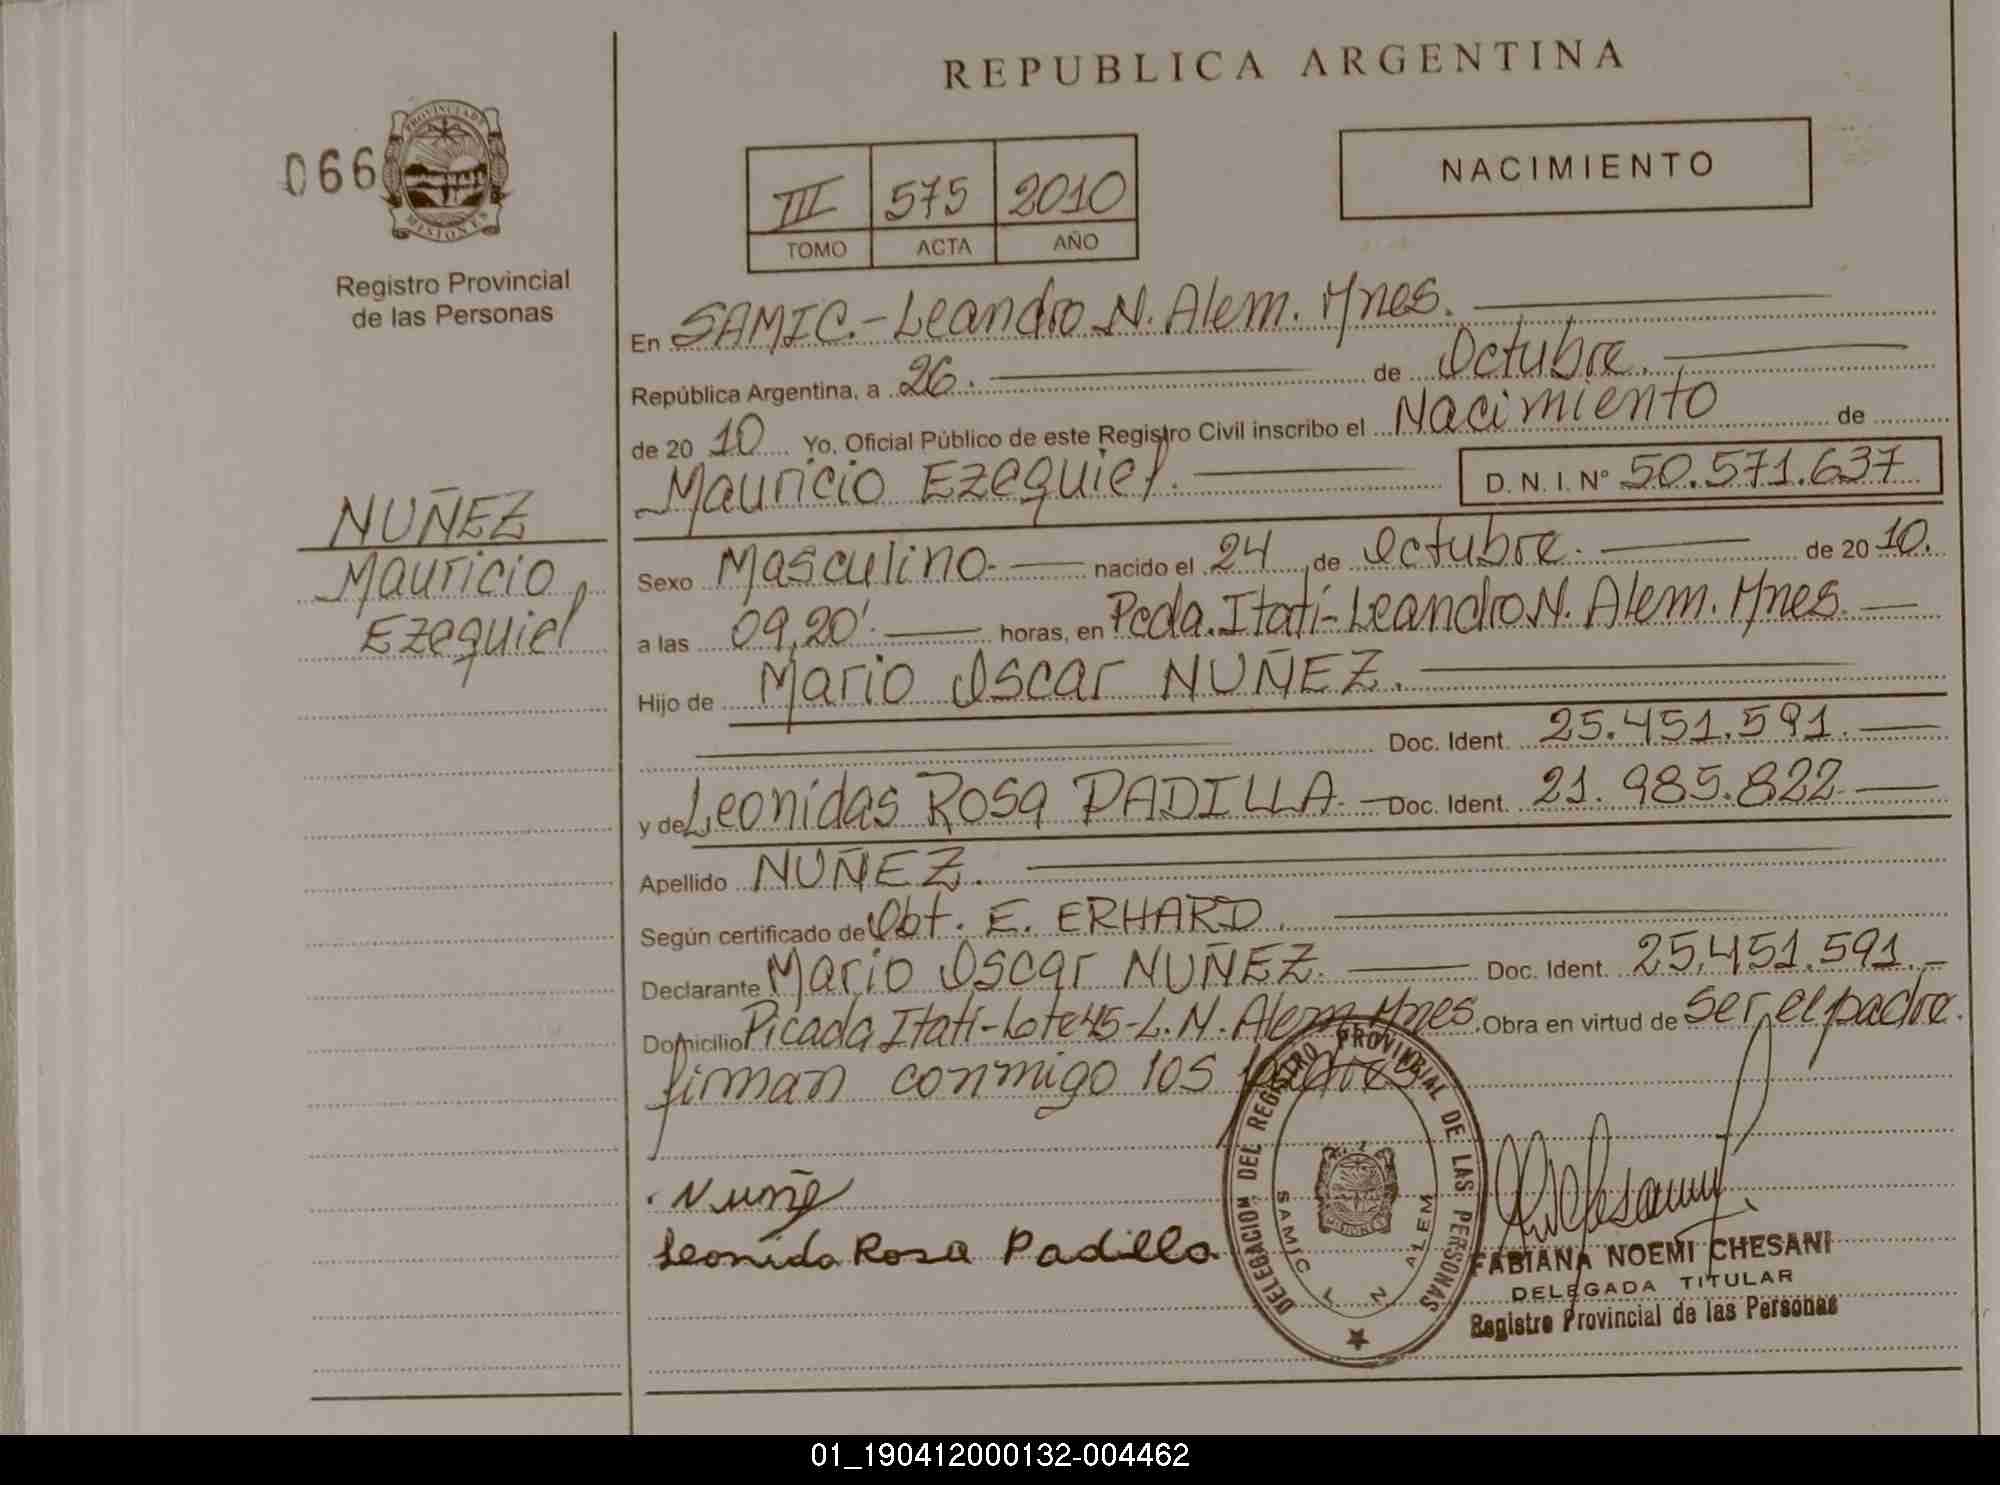 REPUBLICA ARGENTINA
066
PROVINCIA DE
MISIONES
Registro Provincial
de las Personas
III 575 2010
TOMO ACTA AÑO
NACIMIENTO
NUÑEZ
Mauricio
Ezequiel
En SAMIC.- Leandro N. Alem. Mnes.
República Argentina, a 26. de Octubre.
de 20 10 Yo, Oficial Público de este Registro Civil inscribo el Nacimiento de
Mauricio Ezequiel. D. N. I. Nº 50.571.637
Sexo Masculino.- nacido el 24 de Octubre. de 20 10.
a las 09,20'. horas, en Pcda. Itatí- Leandro N. Alem. Mnes.
Hijo de Mario Oscar NUÑEZ.
Doc. Ident. 25.451.591.
y de Leonidas Rosa PADILLA.- Doc. Ident. 21.985.822
Apellido NUÑEZ.
Según certificado de Obt. E. ERHARD.
Declarante Mario Oscar NUÑEZ. Doc. Ident. 25.451.591.-
Domicilio Picada Itatí-Lote 45-L.N. Alem Mnes. Obra en virtud de ser el padre.
firman conmigo los padres
Nuñe
Leonida Rosa Padilla
DELEGACION DEL REGISTRO PROVINCIAL DE LAS PERSONAS
SAMIC L N ALEM
FABIANA NOEMI CHESANI
DELEGADA TITULAR
Registro Provincial de las Personas
01_190412000132-004462